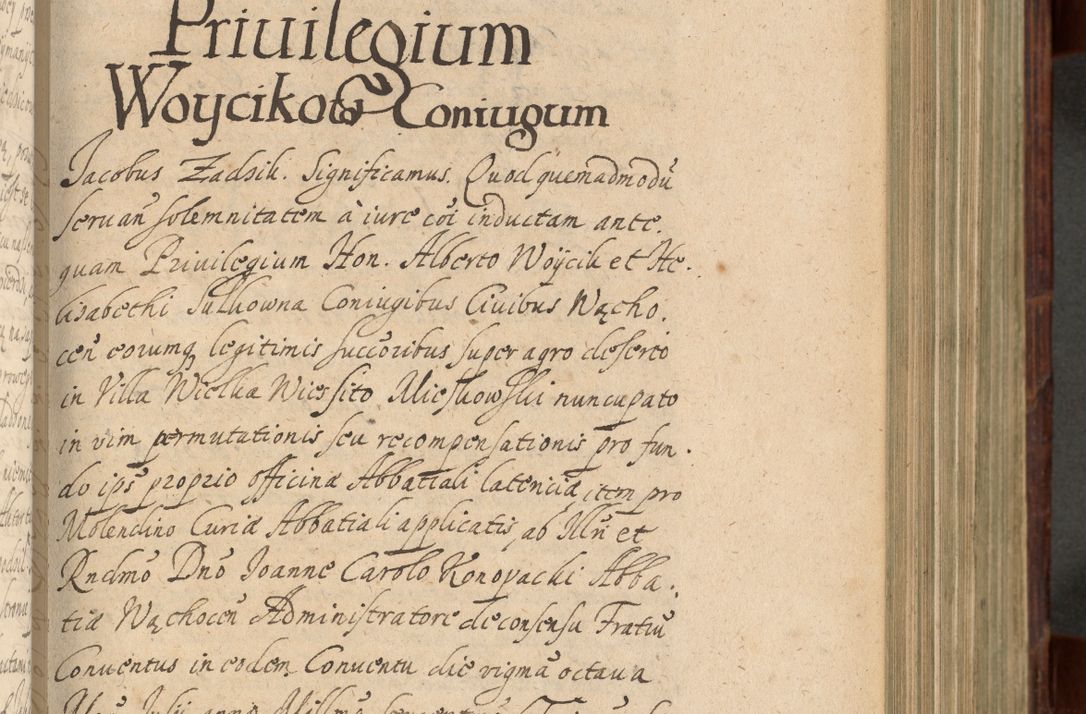 Priuilegium
Woycikow Coniugum
Jacobus Zadsik. Significamus. Quod quemadmodū
seruan̄ solemnitatem à iure cōi inductam ante.
quam Priuilegium Hon. Alberto Woÿcik et He.
lisabethi Sulkowna Coniugibus Ciuibus Wącho.
ceñ eorumq legitimis succoribus super agro deserto
in Villa Wielka Wies sito Mieskowskii nuncupato
in vim permutationis seu recompensationis pro fun.
do ips̄ proprio officinæ Abbatiali latenciæ, item pro
Molendino Curiæ Abbatiali applicatis, ab Illn̄ et
Rndmō Dnō Joanne Carolo Konopacki Abba.
tiæ Wąchoceñ Administratore de consensu Fratrū
Conuentus in eodem Conuentu die vigmā octaua
Julii anno Millmō